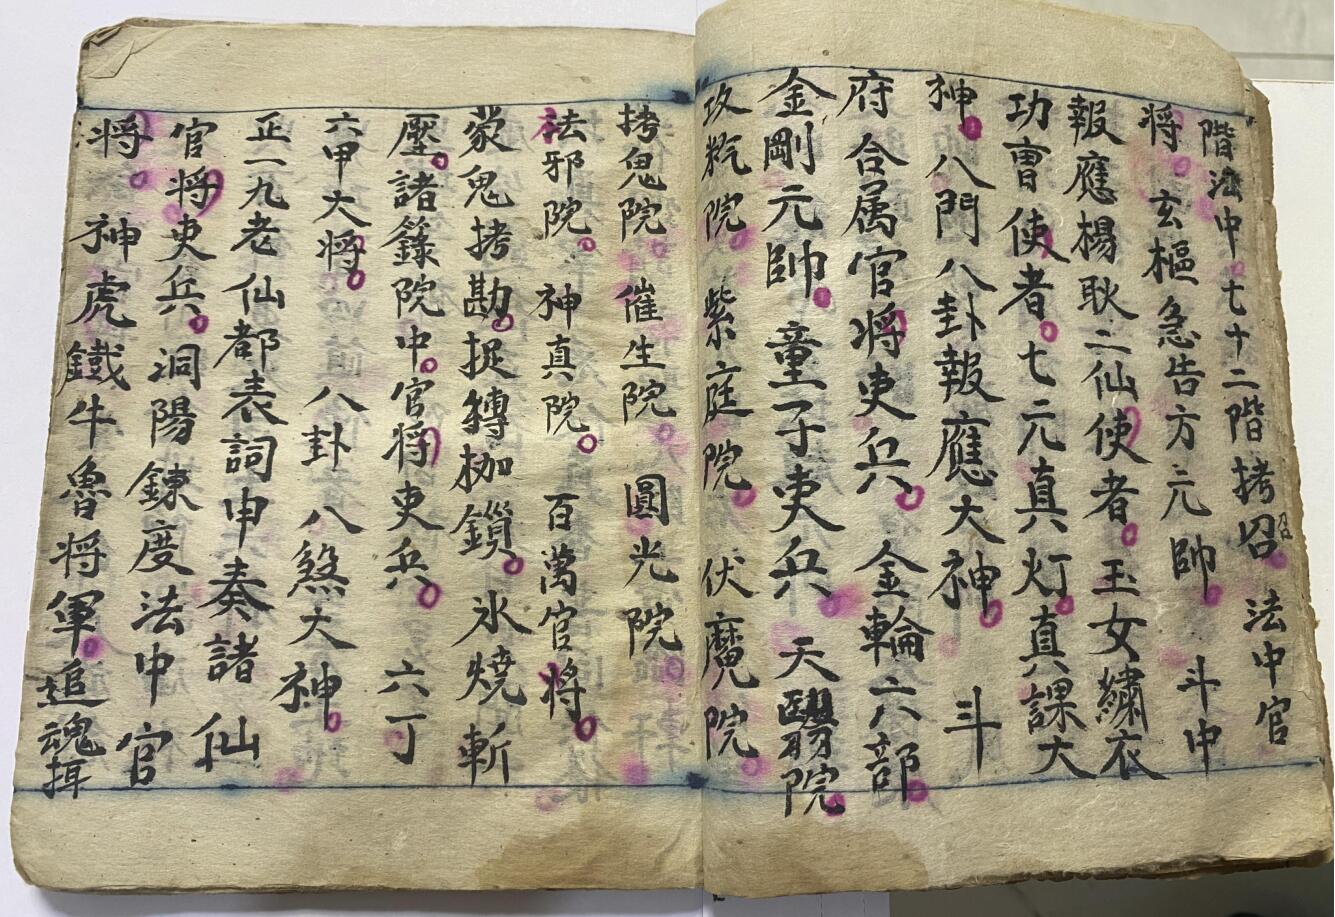 階法中七十二階拷召召法中官
將玄樞急告方元帥斗中
報應楊耿二仙使者玉女繡衣
功曹使者七元真灯真課大
神八門八卦報應大神斗
府合属官将吏兵金輪六部
金剛元帥童子吏兵天醫院
攻籺院紫庭院伏魔院
拷鬼院催生院圓光院
法邪院神真院百萬官将
蒙鬼拷勘捉縛枷鎖氷燒斬
壓諸籙院中官将吏兵六丁
六甲大将八卦八煞大神
正一九老仙都表詞申奏諸仙
官将吏兵洞陽鍊度法中官
将神虎鐵牛魯将軍追魂攝